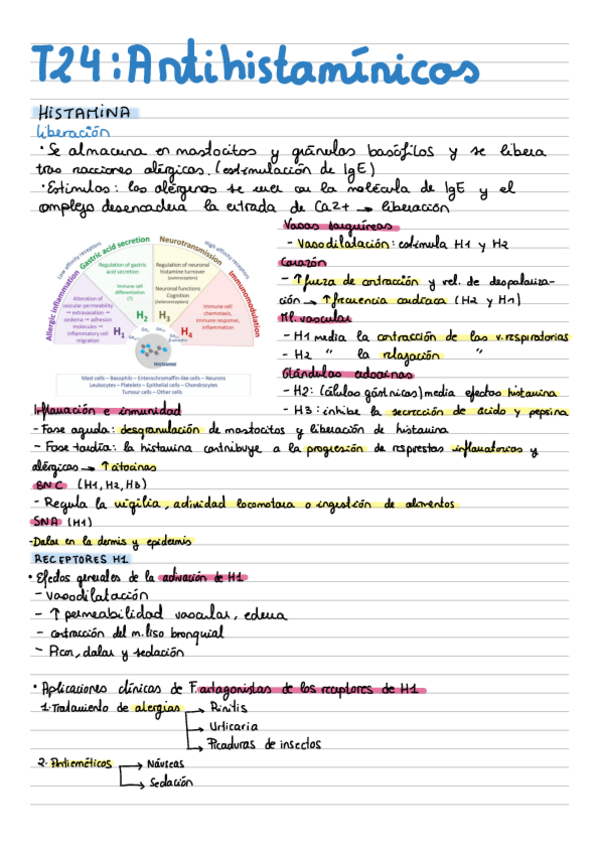 T24: Antihistamínicos
HISTAMINA
Liberación
• Se almacena en mastocitos y gránulos basófilos y se libera
tras reacciones alérgicas. (estimulación de IgE)
• Estímulos: los alérgenos se unen con la molécula de IgE y el
complejo desencadena la entrada de Ca2+ → liberación
Low affinity receptors
High affinity receptors
Allergic inflammation
Gastric acid secretion
Neurotransmission
Immunomodulation
Alteration of
vascular permeability
→ extravasation →
oedema → adhesion
molecules →
inflammatory cell
migration
Regulation of gastric
acid secretion
Immune cell
differentiation
(?)
Regulation of neuronal
histamine turnover
(autoreceptors)
Neuronal functions
Cognition
(heteroreceptors)
Immune cell
chemotaxis,
immune response,
inflammation
H1
H2
H3
H4
Histamine
Mast cells – Basophils – Enterochromaffin-like cells – Neurons
Leukocytes – Platelets – Epithelial cells – Chondrocytes
Tumour cells – Other cells
Vasos sanguíneos
- Vasodilatación: estimula H1 y H2
Corazón
- ↑ fuerza de contracción y vel. de despolariza-
ción → ↑ frecuencia cardiaca (H2 y H1)
- H1 media la contracción de las v. respiratorias
- H2 " la relajación "
Glándulas endocrinas
- H2: (células gástricas) media efectos histamina
- H3: inhibe la secrección de ácido y pepsina
Inflamación e inmunidad
- Fase aguda: desgranulación de mastocitos y liberación de histamina
- Fase tardía: la histamina contribuye a la progresión de respuestas inflamatorias y
alérgicas → ↑ citocinas
SNC (H1, H2, H3)
- Regula la vigilia, actividad locomotora o ingestión de alimentos
SNA (H1)
-Dolor en la dermis y epidermis
RECEPTORES H1
• Efectos generales de la activación de H1
- Vasodilatación
- ↑ permeabilidad vascular, edema
- contracción del m. liso bronquial
- Picor, dolor y sedación
• Aplicaciones clínicas de F. antagonistas de los receptores de H1
1. Tratamiento de alergias → Rinitis
→ Urticaria
→ Picaduras de insectos
2. Antieméticos → Náuseas
→ Sedación